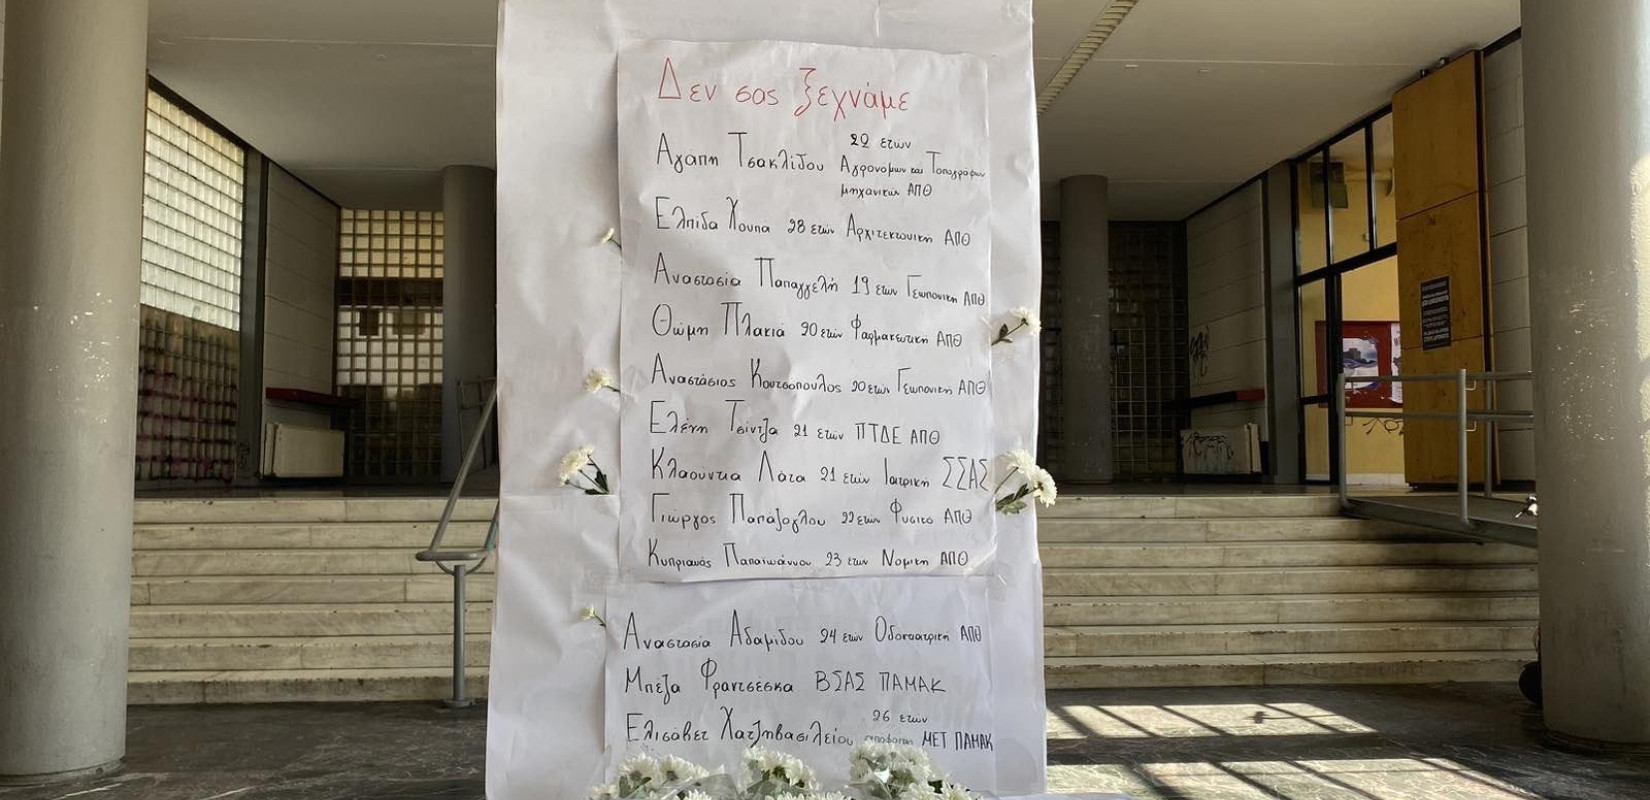 Δεν σας ξεχνάμε
22 ετών
Αγάπη Τσακλίδου Αγρονόμων και Τοπογράφων
μηχανικών ΑΠΘ
Ελπίδα Χούπα 28 ετών Αρχιτεκτονική ΑΠΘ
Αναστασία Παπαγγελή 19 ετών Γεωπονική ΑΠΘ
Θώμη Πλακιά 20 ετών Φαρμακευτική ΑΠΘ
Αναστάσιος Κουτσοπουλος 20 ετών Γεωπονική ΑΠΘ
Ελένη Τσίντζα 21 ετών ΠΤΔΕ ΑΠΘ
Κλαούντια Λάτα 21 ετών Ιατρική ΣΣΑΣ
Γιώργος Παπάζογλου 22 ετών Φυσικό ΑΠΘ
Κυπριανός Παπαϊωάννου 23 ετών Νομική ΑΠΘ
Αναστασία Αδαμίδου 24 ετών Οδοντιατρική ΑΠΘ
Μπέζα Φραντσέσκα ΒΣΑΣ ΠΑΜΑΚ
26 ετών
Ελισάβετ Χατζηβασιλείου απόφοιτη ΜΕΤ ΠΑΜΑΚ